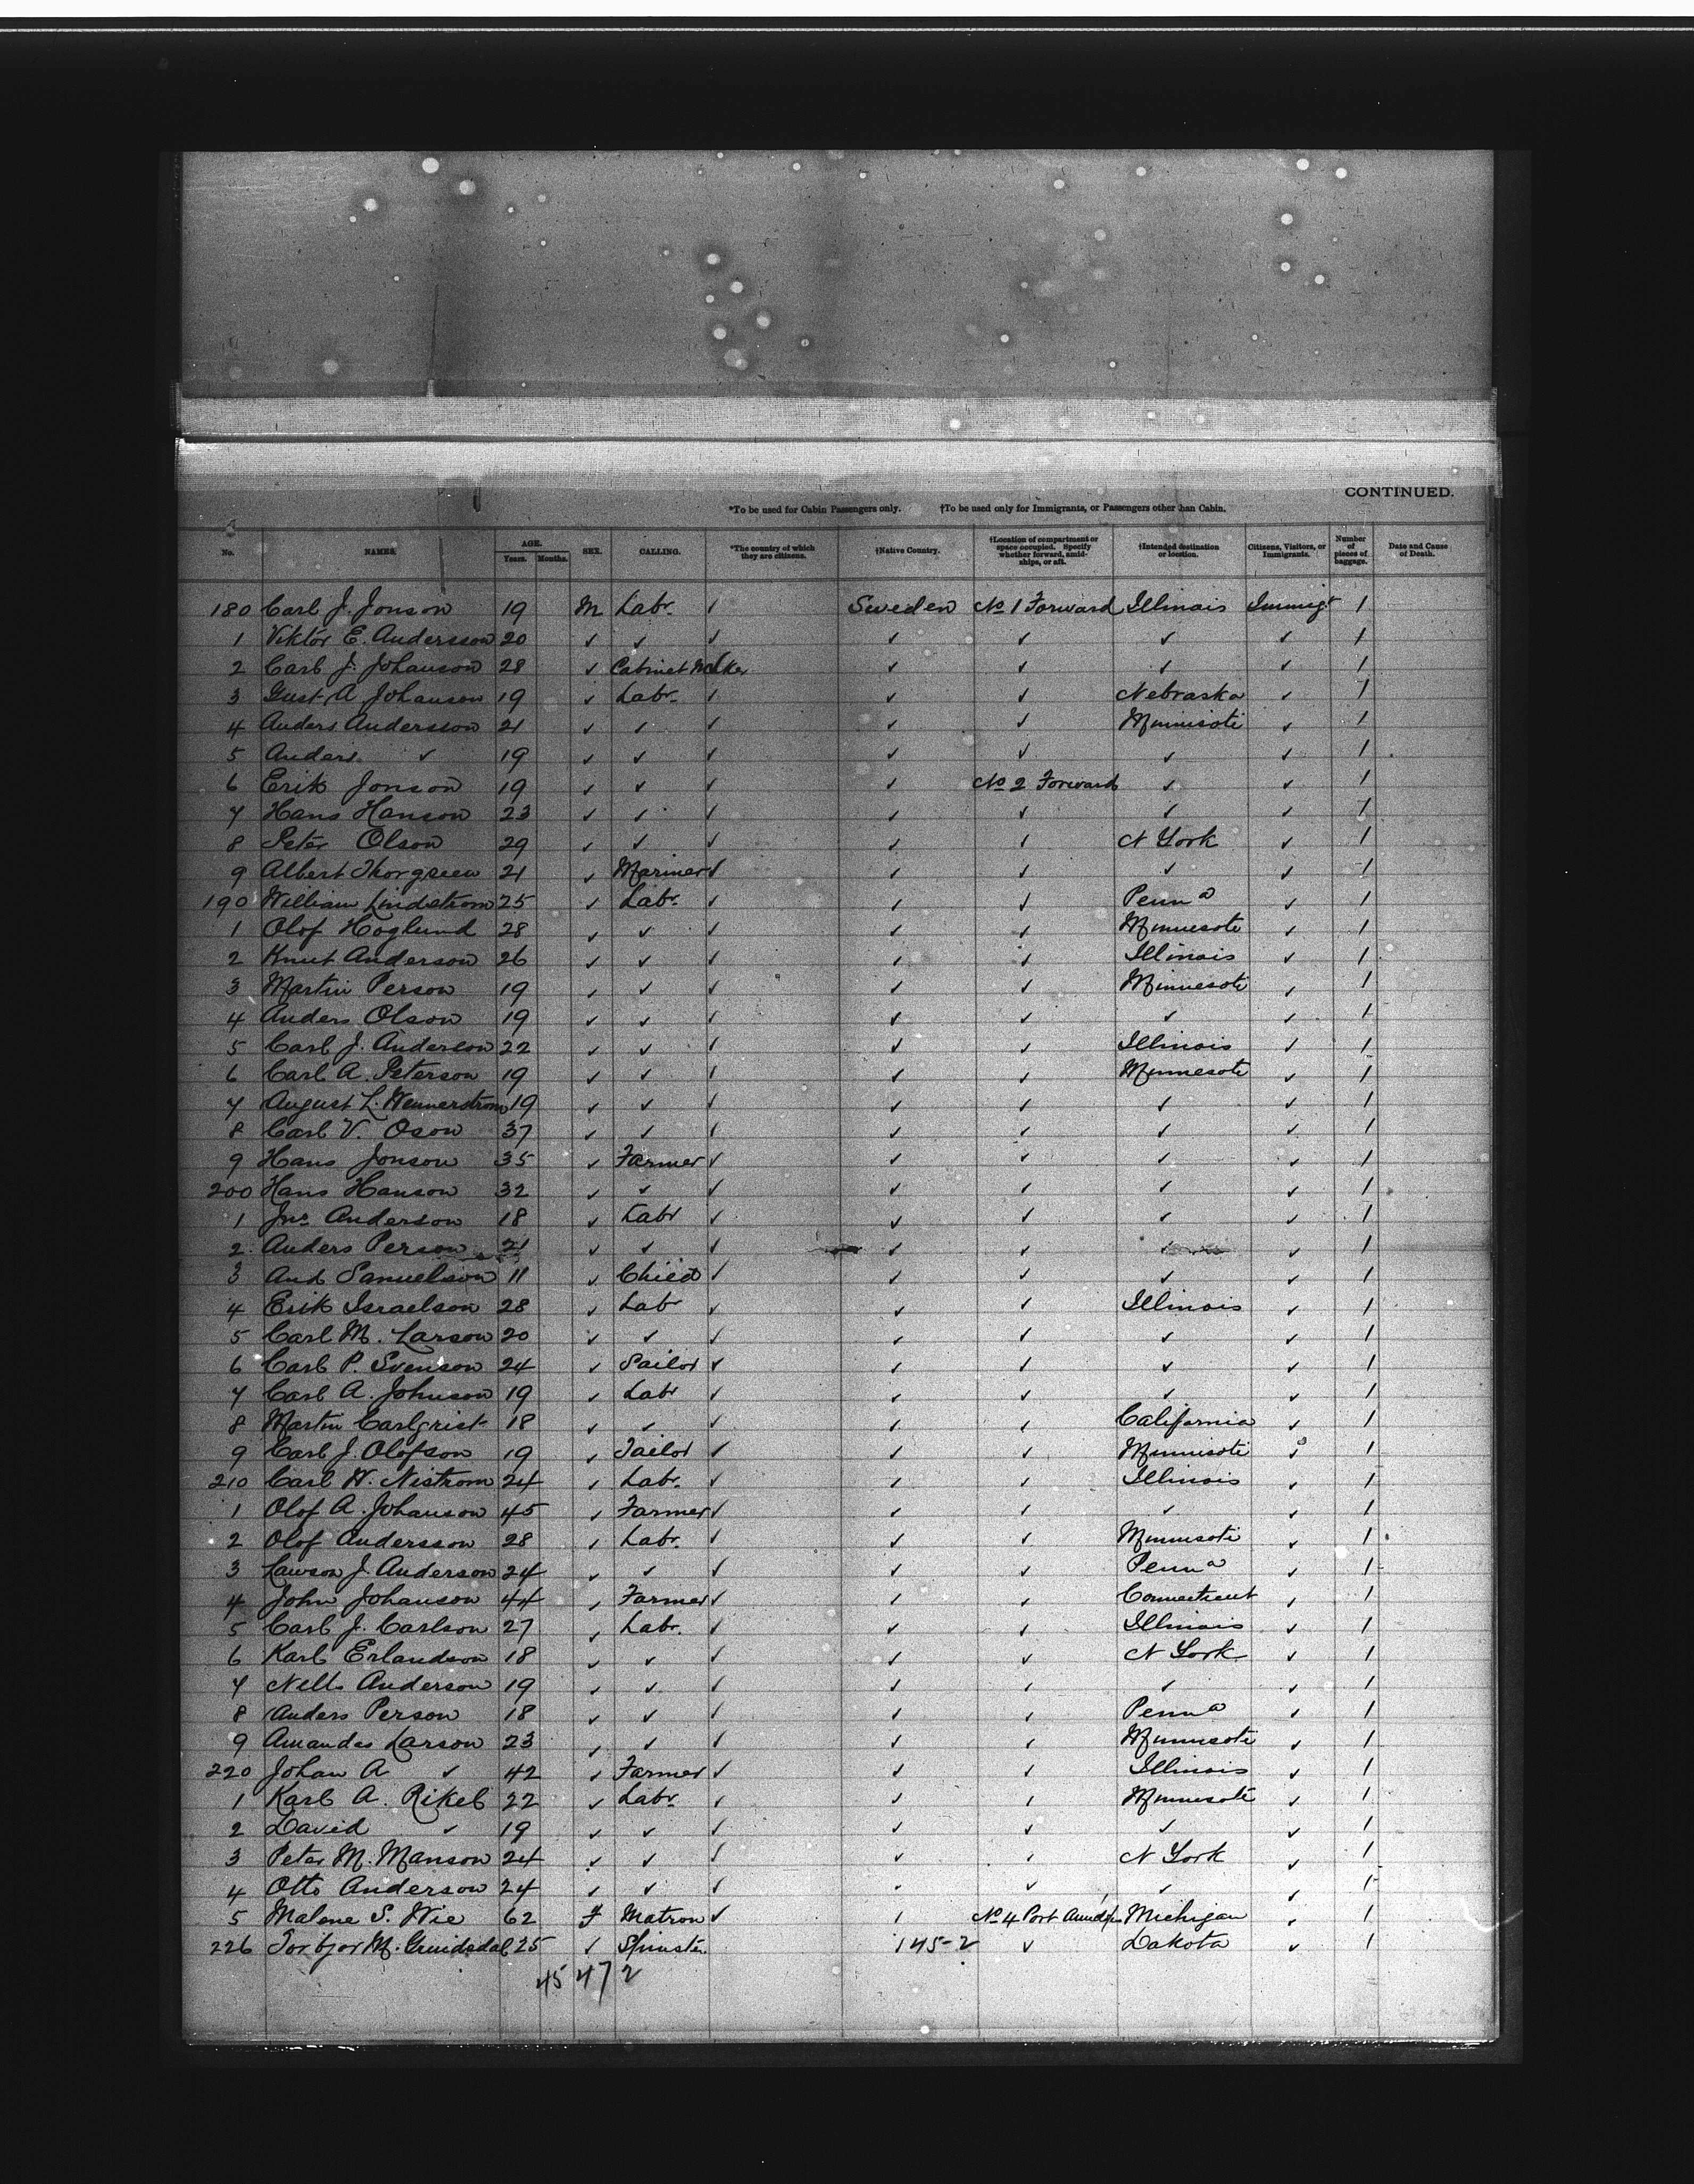 CONTINUED.
*To be used for Cabin Passengers only. †To be used only for Immigrants, or Passengers other than Cabin.
No. NAMES. AGE. Years. Months. SEX. CALLING. *The country of which they are citizens. †Native Country. †Location of compartment or space occupied. Specify whether forward, amidships, or aft. †Intended destination or location. Citizens, Visitors, or Immigrants. Number of pieces of baggage. Date and Cause of Death.
180 Carl J. Jonson 19 M Labr. ✓ Sweden No 1 Forward Illinois Immigt 1
1 Viktor E. Andersson 20 ✓ ✓ ✓ ✓ ✓ ✓ ✓ 1
2 Carl J. Johanson 28 ✓ Cabinet Maker ✓ ✓ ✓ ✓ 1
3 Gust A Johanson 19 ✓ Labr. ✓ ✓ ✓ Nebraska ✓ 1
4 Anders Andersson 21 ✓ ✓ ✓ ✓ ✓ Minnisoti ✓ 1
5 Anders ✓ 19 ✓ ✓ ✓ ✓ ✓ ✓ ✓ 1
6 Erik Jonson 19 ✓ ✓ ✓ ✓ No 2 Forward ✓ ✓ 1
7 Hans Hanson 23 ✓ ✓ ✓ ✓ ✓ ✓ ✓ 1
8 Peter Olson 29 ✓ ✓ ✓ ✓ ✓ N York ✓ 1
9 Albert Thorgreen 21 ✓ Mariner ✓ ✓ ✓ ✓ ✓ 1
190 William Lindstrom 25 ✓ Labr. ✓ ✓ ✓ Penna ✓ 1
1 Olof Hoglund 28 ✓ ✓ ✓ ✓ ✓ Minnesoti ✓ 1
2 Knut Anderson 26 ✓ ✓ ✓ ✓ ✓ Illinois ✓ 1
3 Martin Person 19 ✓ ✓ ✓ ✓ ✓ Minnesoti ✓ 1
4 Anders Olson 19 ✓ ✓ ✓ ✓ ✓ ✓ ✓ 1
5 Carl J. Anderson 22 ✓ ✓ ✓ ✓ ✓ Illinois ✓ 1
6 Carl A. Peterson 19 ✓ ✓ ✓ ✓ ✓ Minnesoti ✓ 1
7 August L. Wennerstrom 19 ✓ ✓ ✓ ✓ ✓ ✓ ✓ 1
8 Carl V. Oson 37 ✓ ✓ ✓ ✓ ✓ ✓ ✓ 1
9 Hans Jonson 35 ✓ Farmer ✓ ✓ ✓ ✓ ✓ 1
200 Hans Hanson 32 ✓ ✓ ✓ ✓ ✓ ✓ ✓ 1
1 Jno. Anderson 18 ✓ Labr ✓ ✓ ✓ ✓ ✓ 1
2 Anders Person 21 ✓ ✓ ✓ ✓ ✓ ✓ ✓ 1
3 And Samuelson 11 ✓ Child ✓ ✓ ✓ ✓ ✓ 1
4 Erik Israelson 28 ✓ Labr ✓ ✓ ✓ Illinois ✓ 1
5 Carl M. Larson 20 ✓ ✓ ✓ ✓ ✓ ✓ ✓ 1
6 Carl P. Svenson 24 ✓ Sailor ✓ ✓ ✓ ✓ ✓ 1
7 Carl A. Johnson 19 ✓ Labr ✓ ✓ ✓ ✓ ✓ 1
8 Martin Carlgrist 18 ✓ ✓ ✓ ✓ ✓ California ✓ 1
9 Carl J. Olofson 19 ✓ Tailor ✓ ✓ ✓ Minnisoti ✓ 1
210 Carl W. Nistrom 24 ✓ Labr. ✓ ✓ ✓ Illinois ✓ 1
1 Olof A. Johanson 45 ✓ Farmer ✓ ✓ ✓ ✓ ✓ 1
2 Olof Andersson 28 ✓ Labr. ✓ ✓ ✓ Minnisoti ✓ 1
3 Lawson J. Anderson 24 ✓ ✓ ✓ ✓ ✓ Penna ✓ 1
4 John Johanson 44 ✓ Farmer ✓ ✓ ✓ Connecticut ✓ 1
5 Carl J. Carlson 27 ✓ Labr. ✓ ✓ ✓ Illinois ✓ 1
6 Karl Erlandson 18 ✓ ✓ ✓ ✓ ✓ N York ✓ 1
7 Nells Anderson 19 ✓ ✓ ✓ ✓ ✓ ✓ ✓ 1
8 Anders Person 18 ✓ ✓ ✓ ✓ ✓ Penna ✓ 1
9 Amandes Larson 23 ✓ ✓ ✓ ✓ ✓ Minnesoti ✓ 1
220 Johan A ✓ 42 ✓ Farmer ✓ ✓ ✓ Illinois ✓ 1
1 Karl A. Rikel 22 ✓ Labr. ✓ ✓ ✓ Minnesoti ✓ 1
2 David ✓ 19 ✓ ✓ ✓ ✓ ✓ ✓ ✓ 1
3 Peter M. Manson 24 ✓ ✓ ✓ ✓ ✓ N York ✓ 1
4 Otto Anderson 24 ✓ ✓ ✓ ✓ ✓ ✓ ✓ 1
5 Malene S. Wie 62 F Matron ✓ ✓ No 4 Port Michigan ✓ 1
226 Torbjor M. 25 ✓ Spinster 145-2 ✓ Dakota ✓ 1
45 47 2